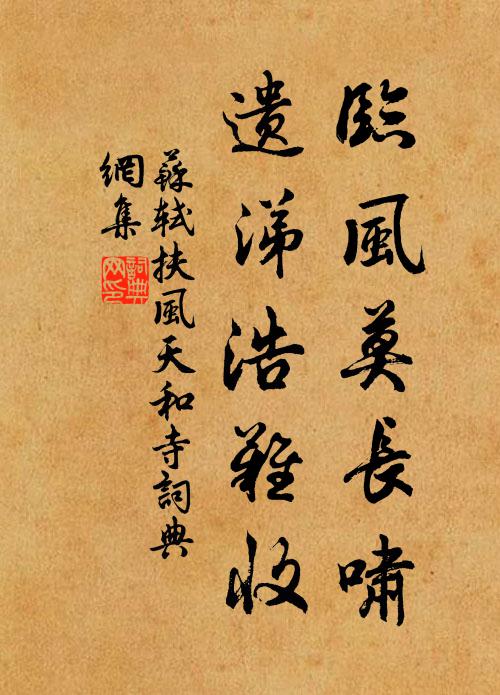 臨風莫長嘯
遺涕浩難收
蘇軾扶風天和寺詞典
網集
詞典
网印